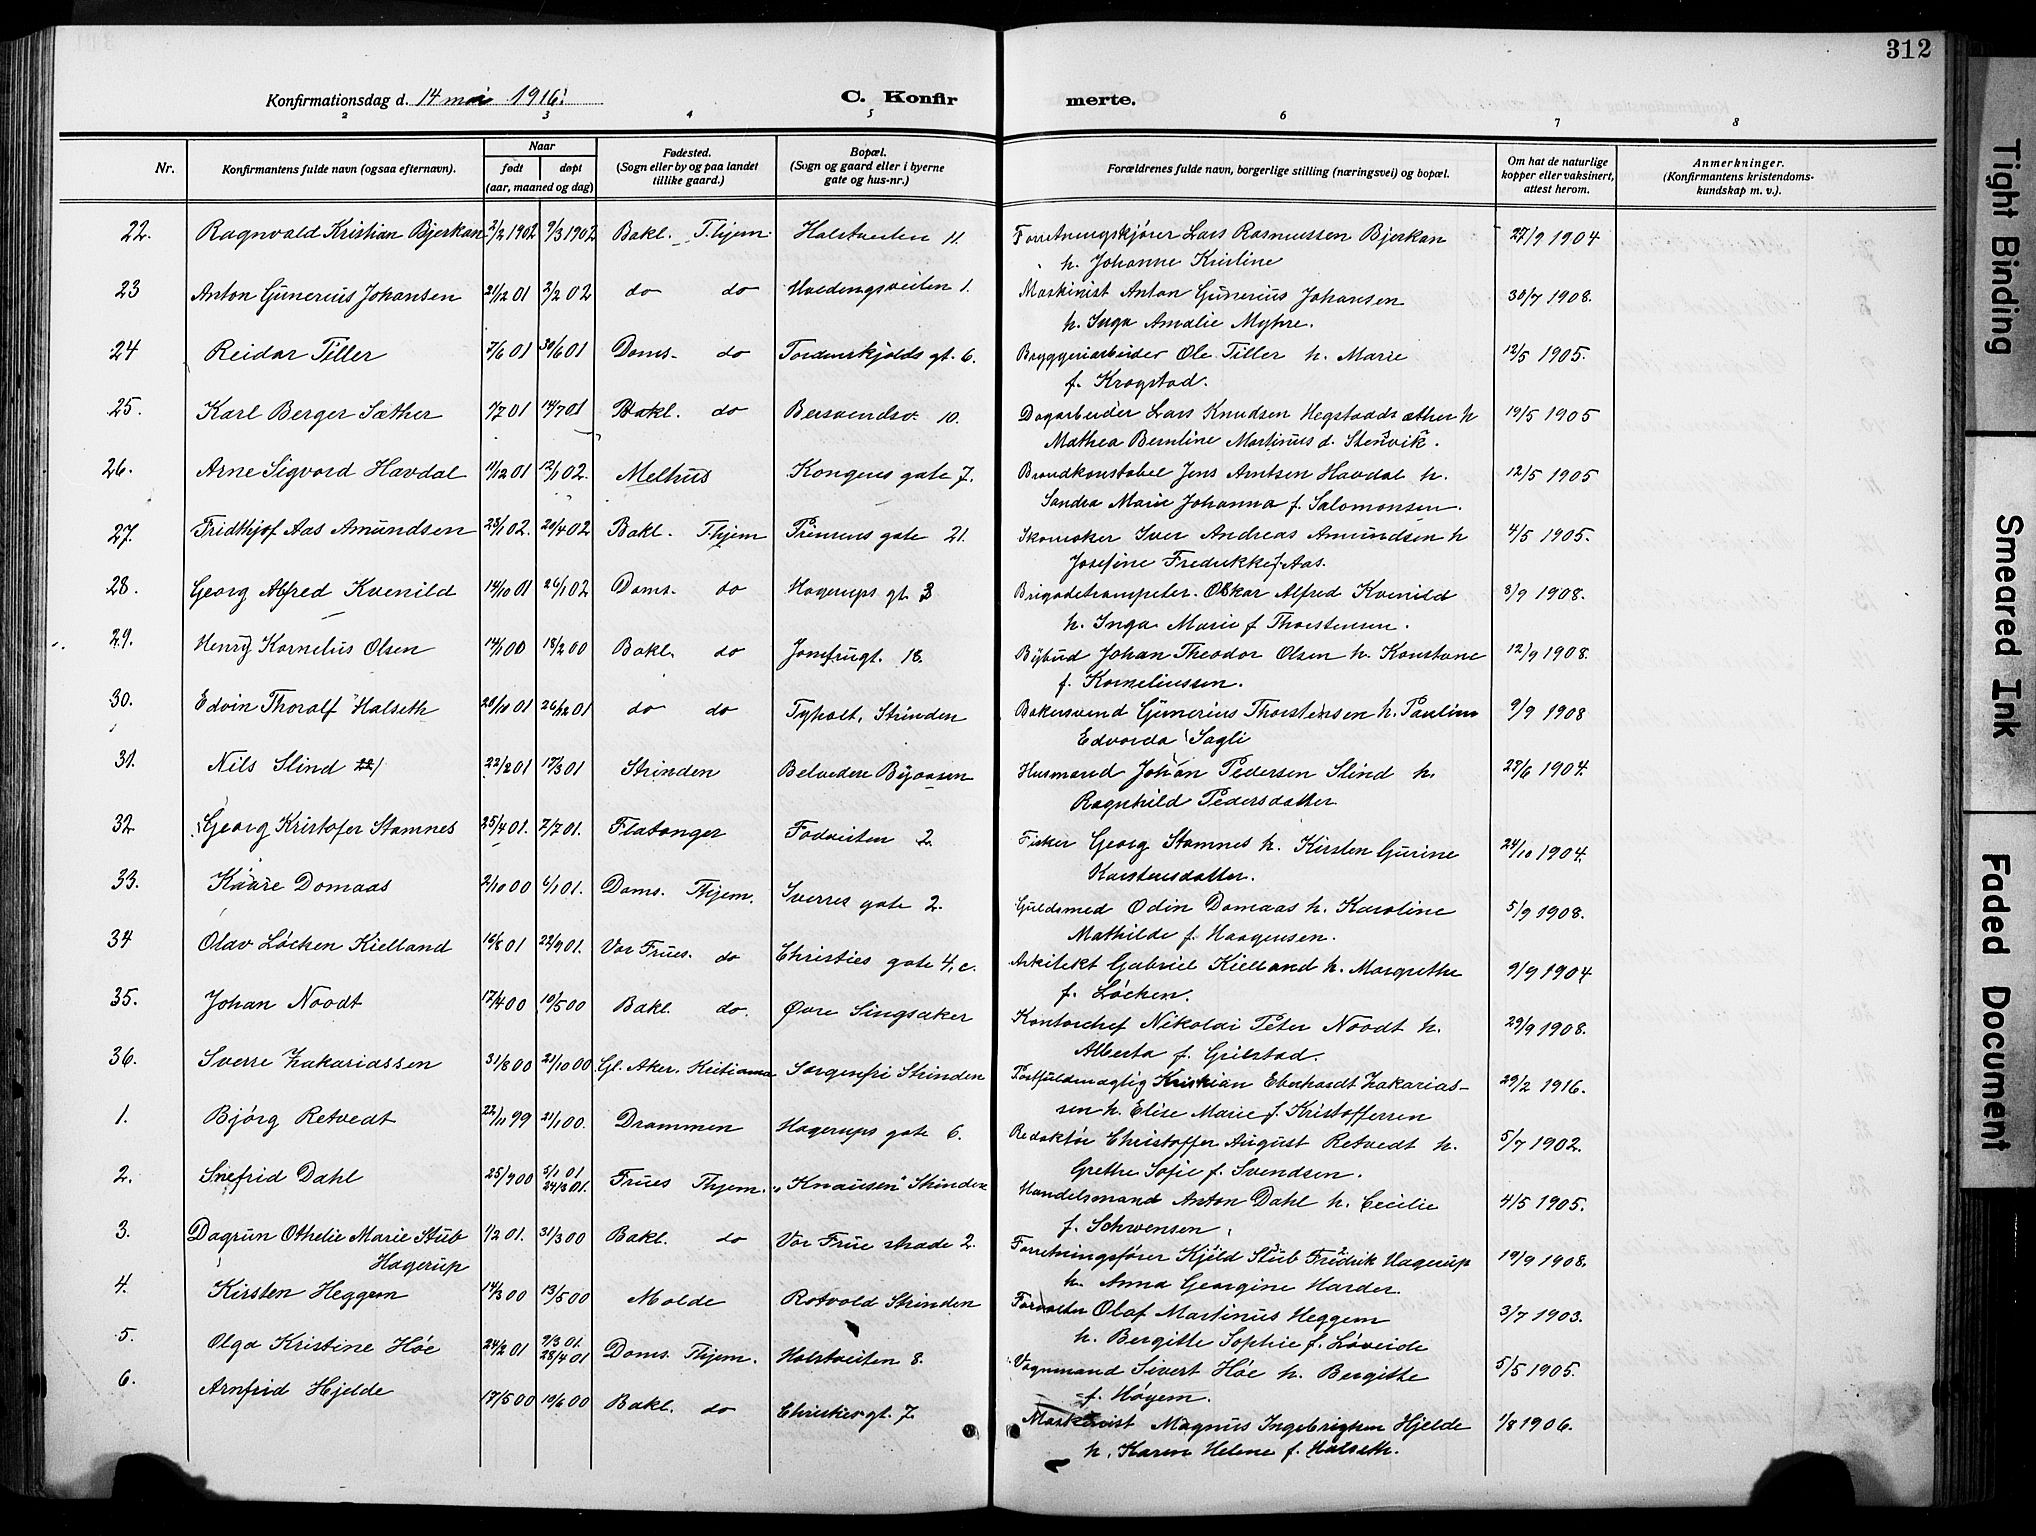 312
Konfirmationsdag d. 14 mai 1916.
C. Konfirmerte.
2 3 4 5 6 7 8
Nr. Konfirmantens fulde navn (ogsaa efternavn). Naar født døpt (aar, maaned og dag) Fødested. (Sogn eller by og paa landet tillike gaard.) Bopæl. (Sogn og gaard eller i byerne gate og hus-nr.) Forældrenes fulde navn, borgerlige stilling (næringsvei) og bopæl. Om hat de naturlige kopper eller vaksinert, attest herom. Anmerkninger. (Konfirmantens kristendomskundskap m. v.).
22. Ragnvald Kristian Bjerkan 2/2 1902 9/3 1902 Bakl. Thjem. Holstveiten 11. Forretningskjører Lars Rasmussen Bjerkan 27/9 1904
h. Johanne Kristine
23 Anton Gunerius Johansen 21/12 01 2/2 02 do do Hvedingsveiten 1. Maskinist Anton Gunerius Johansen 30/7 1908.
h. Inga Amalie Myhre.
24 Reidar Tiller 7/6 01 30/6 01 Doms- do Tordenskjolds gt. 6. Bryggeriarbeider Ole Tiller h. Marie 12/5 1905.
f. Krogstad.
25. Karl Berger Sæther 1/7 01 14/7 01 Bakl. do Bersvendsv. 10. Dagarbeider Lars Knudsen Hegstadsæther h 19/5 1905
Mathea Berntine Martinus d. Stenvik.
26. Arne Sigvard Havdal 11/12 01 12/1 02. Melhus Kongens gate 7. Brandkonstabel Jens Arntsen Havdal h. 12/5 1905
Sandra Marie Johanna f. Salomonsen.
27. Fridthjof Aas Amundsen 23/1 02. 20/4 02 Bakl. Thjem Prinsens gate 21. Skomaker Iver Andreas Amundsen h 4/5 1905.
Josefine Fredrikke f. Aas.
28. Georg Alfred Kvenild 14/10 01 26/1 02 Doms. do Hagerups gt. 3 Brigadetrompeter Oskar Alfred Kvenild 8/9 1908.
h. Inga Marie f Thorstensen.
29. Henry Kornelius Olsen 14/1 00 18/2 00 Bakl. do Jomfrugt. 18. Bybud Johan Theodor Olsen h. Konstane 12/9 1908.
f. Korneliussen.
30. Edvin Thoralf Halseth 28/10 01 26/12 01 do do Tyholt, Strinden Bakersvend Gunerius Thorstensen h. Pauline 9/9 1908
Edvarda Sagli
31. Nils Slind 22/2 01 17/3 01 Strinden Belvedere Byaasen Husmand Johan Pedersen Slind h. 28/6 1904.
Ragnhild Pedersdatter
32. Georg Kristofer Stamnes 25/4 01. 7/7 01. Flatanger Fodveiten 2. Fisker Georg Stamnes h. Kirsten Gurine 24/10 1904.
Karstensdatter.
33. Kaare Domaas 2/10 00 6/1 01. Doms. Thjem. Sverres gate 2. Guldsmed Odin Domaas h. Karoline 5/9 1908.
Mathilde f. Haagensen.
34 Olav Løchen Kielland 16/8 01 22/9 01. Vor Frues. do Christies gate 4, c. Arkitekt Gabriel Kielland h. Margrethe 9/9 1904
f. Løchen.
35. Johan Noodt 17/4 00 10/5 00 Bakl. do. Øvre Singsaker Kontorchef Nikolai Peter Noodt h. 29/9 1908.
Alberta f. Grilstad.
36. Sverre Zakariassen 31/8 00 21/10 00 Gl. Aker. Kristiania Sorgenfri Strinden Postfuldmægtig Kristian Eberhardt Zakarias- 29/2 1916.
sen h. Elise Marie f. Kristoffersen
1. Bjørg Retvedt 22/11 99 21/1 00. Drammen Hagerups gate 6. Redaktør Christoffer August Retvedt h. 5/7 1902.
Grethe Sofie f. Svendsen.
2. Snefrid Dahl 25/9 00 5/1 01. 24/3 01. Frues Thjem. "Knausen" Strinden Handelsmand Anton Dahl h. Cecilie 4/5 1905.
f. Schwensen.
3. Dagrun Othelie Marie Stub 1/2 01. 31/3 00 Bakl. do Vor Frue strade 2. Forretningsfører Kjeld Stub Fredrik Hagerup 19/9 1908.
Hagerup h. Anna Georgine Harder.
4. Kirsten Heggem 14/3 00 13/5 00 Molde Rotvold Strinden Forvalter Olaf Martinus Heggem 3/7 1903.
h. Bergitte Sophie f. Løveide
5. Olga Kristine Høe 24/2 01 7/3 01. 28/4 01 Doms. Thjem. Holstveiten 8. Vognmand Sivert Høe h. Bergitte 5/5 1905.
f. Høyem.
6. Arnfrid Hjelde 17/5 00 10/6 00 Bakl. do Christies gt. 7. Maskinist Magnus Ingebrigtsen Hjelde 1/8 1906.
h. Karen Helene f. Halseth.
Tight Binding
Smeared Ink
Faded Document